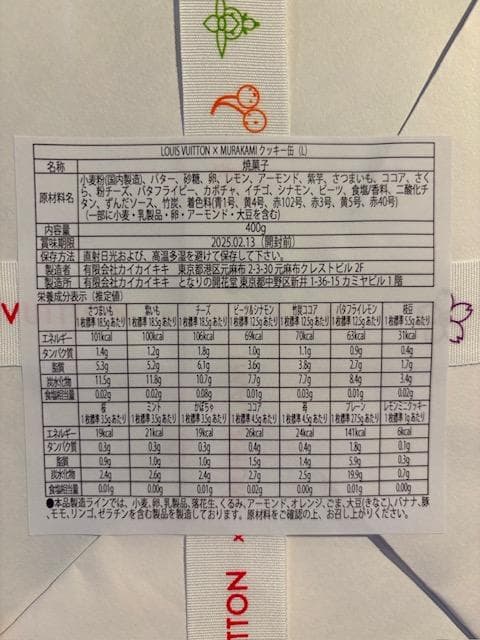 LOUIS VUITTON × MURAKAMI クッキー缶 (L)
名称 焼菓子
原材料名 小麦粉(国内製造)、バター、砂糖、卵、レモン、アーモンド、紫芋、さつまいも、ココア、さく
ら、粉チーズ、バタフライピー、カボチャ、イチゴ、シナモン、ビーツ、食塩/香料、二酸化チ
タン、ずんだソース、竹炭、着色料(青1号、黄4号、赤102号、赤3号、黄5号、赤40号)
(一部に小麦・乳製品・卵・アーモンド・大豆を含む)
内容量 400g
賞味期限 2025.02.13 (開封前)
保存方法 直射日光および、高温多湿を避けて保存して下さい。
製造者 有限会社カイカイキキ 東京都港区元麻布 2-3-30 元麻布クレストビル 2F
製造所 有限会社カイカイキキ となりの開花堂 東京都中野区新井 1-36-15 カミヤビル 1 階
栄養成分表示 (推定値)
さつまいも 紫いも チーズ ビーツ&シナモン 竹炭ココア バタフライレモン 枝豆
1枚標準 18.5gあたり 1枚標準 18.5gあたり 1枚標準 18.5gあたり 1枚標準 12.5gあたり 1枚標準 12.5gあたり 1枚標準 12.5gあたり 1枚標準 5.5gあたり
エネルギー 101kcal 100kcal 106kcal 69kcal 70kcal 63kcal 31kcal
タンパク質 1.4g 1.2g 1.8g 1.0g 1.1g 0.9g 0.4g
脂質 5.3g 5.2g 6.1g 3.6g 3.8g 2.7g 1.7g
炭水化物 11.5g 11.8g 10.7g 7.7g 7.7g 8.4g 3.4g
食塩相当量 0.02g 0.02g 0.08g 0.01g 0.03g 0.01g 0.02g
桜 ミント かぼちゃ ココア 苺 プレーン レモンミニクッキー
1枚標準 3.5gあたり 1枚標準 3.5gあたり 1枚標準 3.5gあたり 1枚標準 4.5gあたり 1枚標準 4.5gあたり 1枚標準 27.5gあたり 1枚標準 1gあたり
エネルギー 19kcal 21kcal 19kcal 26kcal 24kcal 141kcal 6kcal
タンパク質 0.3g 0.3g 0.3g 0.4g 0.4g 1.8g 0.1g
脂質 0.9g 1.0g 1.0g 1.5g 1.4g 5.9g 0.3g
炭水化物 2.4g 2.6g 2.4g 2.7g 2.5g 19.9g 0.7g
食塩相当量 0.01g 0.00g 0.01g 0.02g 0.00g 0.01g 0.00g
●本品製造ラインでは、小麦、卵、乳製品、落花生、くるみ、アーモンド、オレンジ、ごま、大豆(きなこ)、バナナ、豚
、モモ、リンゴ、ゼラチンを含む製品を製造しております。原材料をご確認の上、お召し上がりください。
V
×
TTON